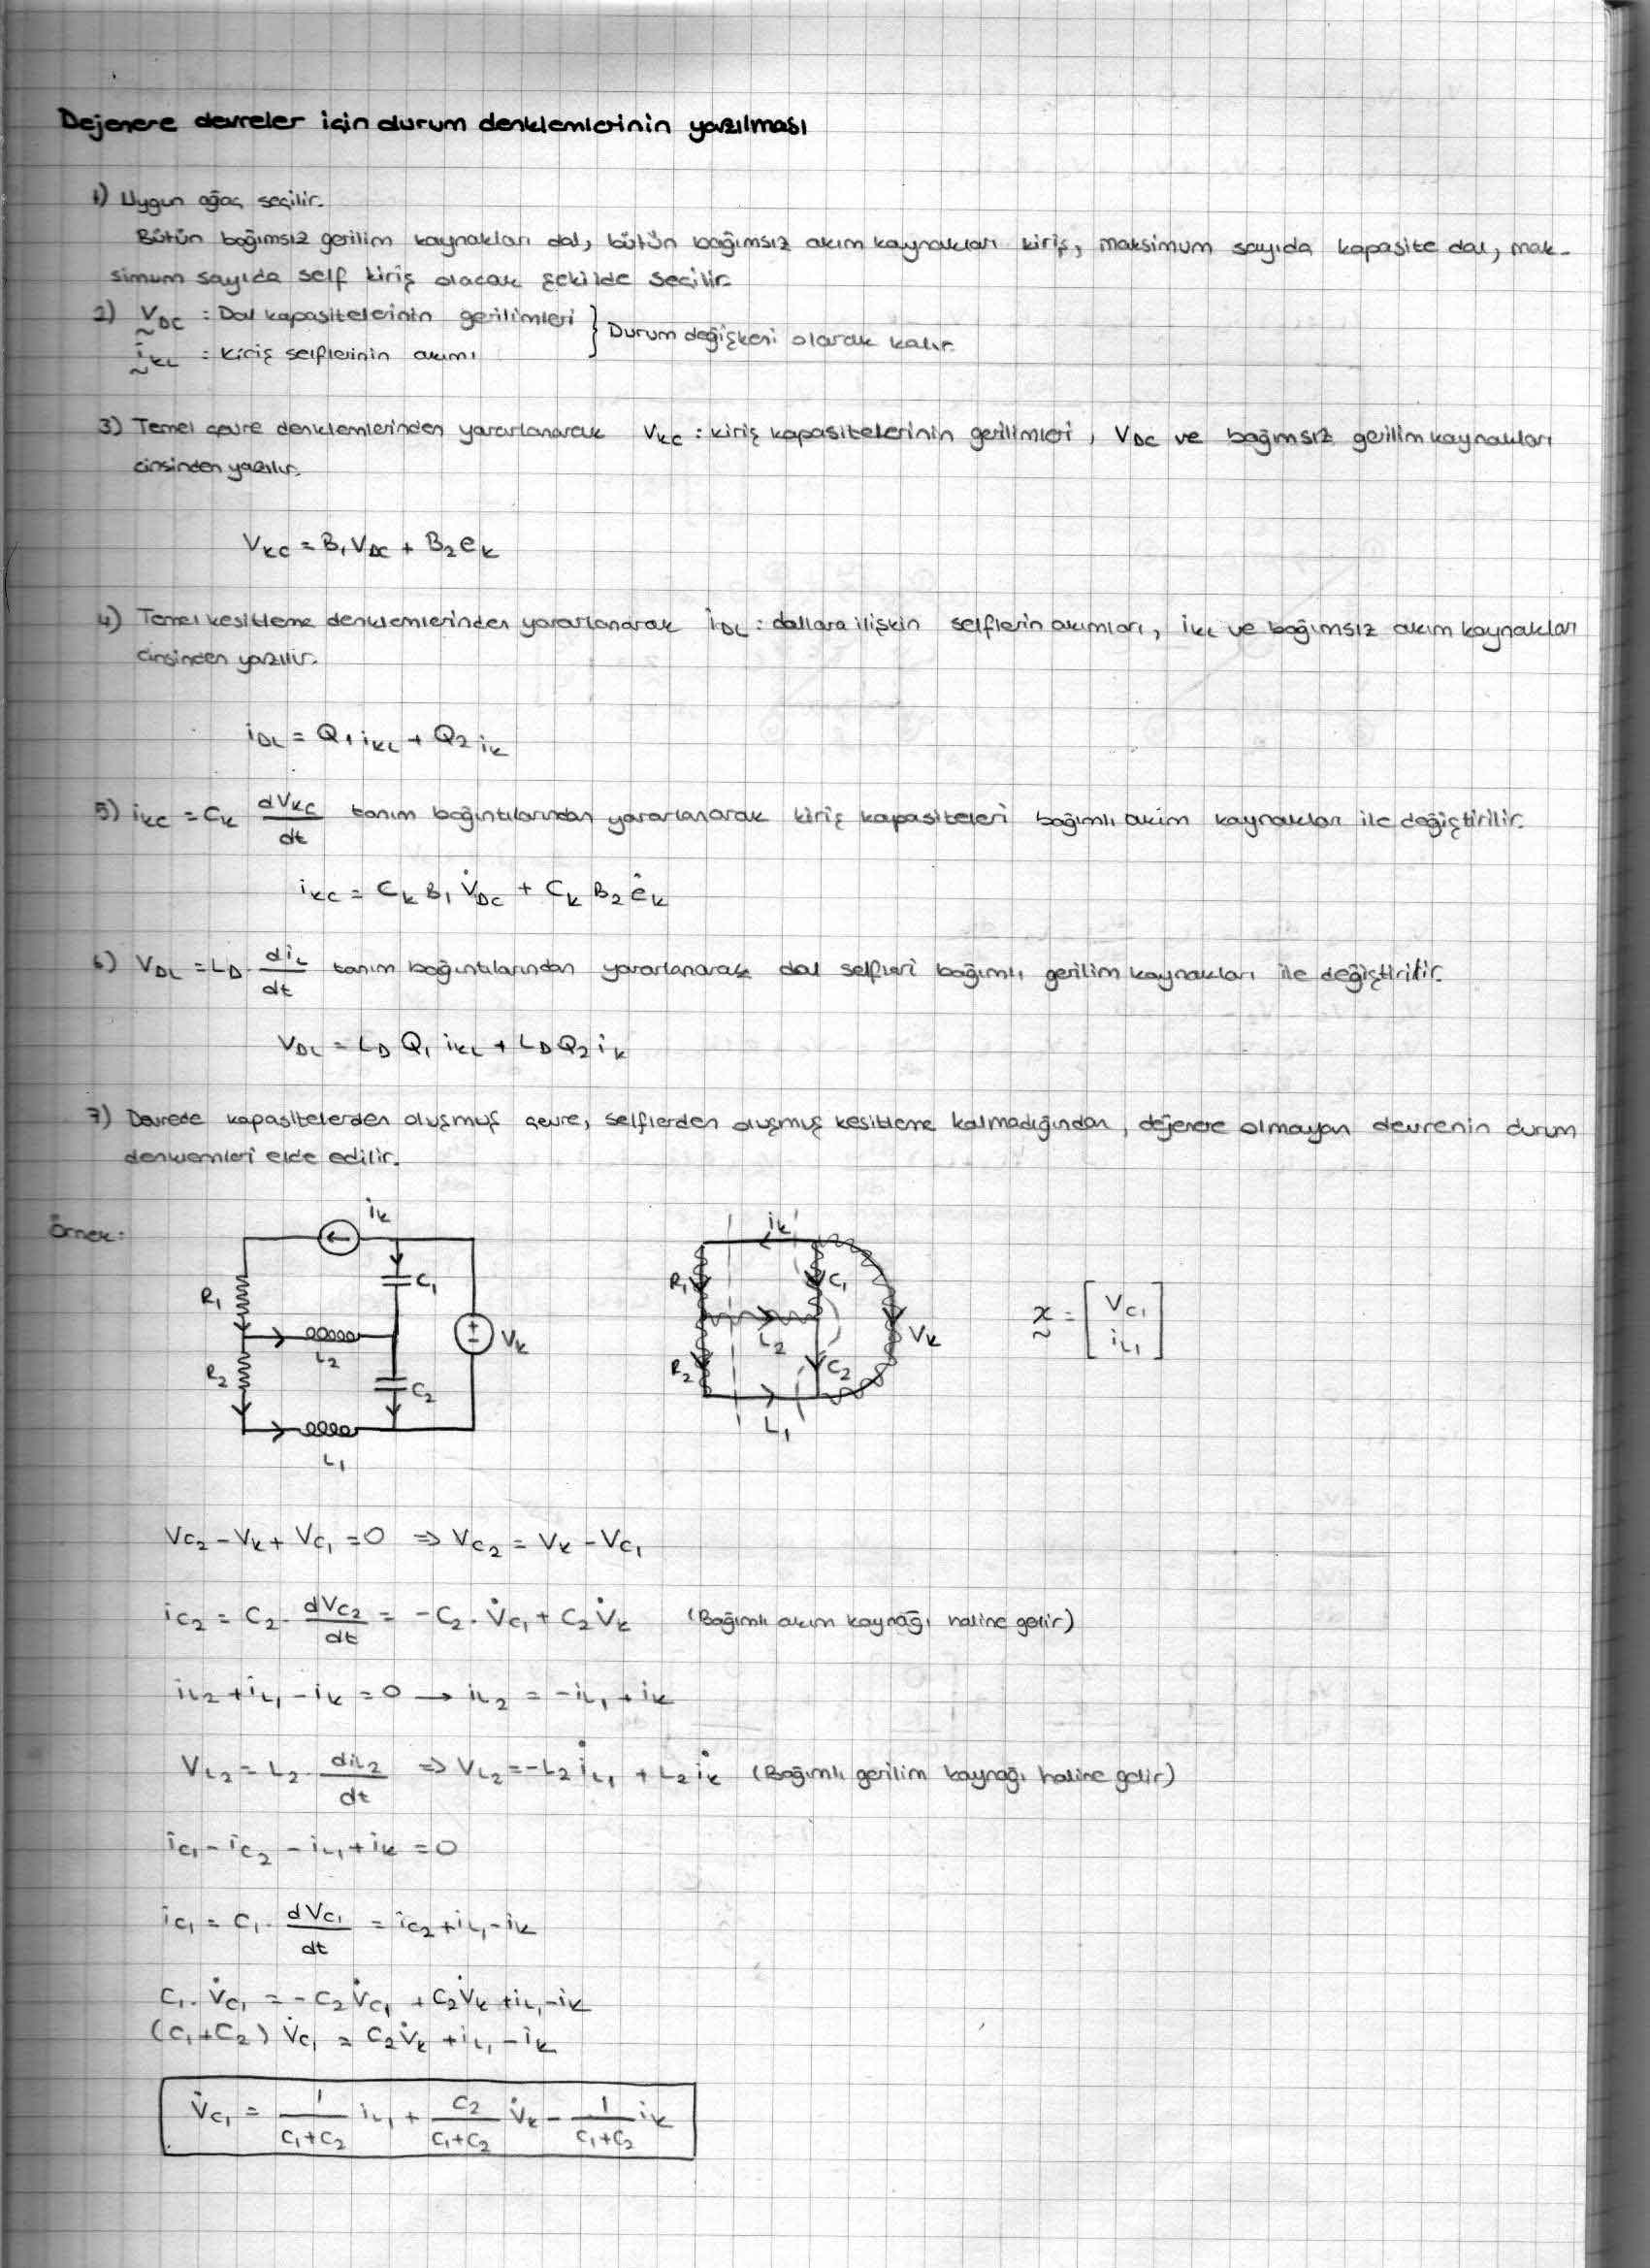 Dejenere devreler için durum denklemlerinin yazılması
1) Uygun ağaç seçilir.
Bütün bağımsız gerilim kaynakları dal, bütün bağımsız akım kaynakları kiriş, maksimum sayıda kapasite dal, mak-
simum sayıda self kiriş olacak şekilde seçilir.
2) V_DC : Dal kapasitelerinin gerilimleri } Durum değişkeni olarak kalır.
i_KL : Kiriş selflerinin akımı
3) Temel çevre denklemlerinden yararlanarak V_KC : kiriş kapasitelerinin gerilimleri, V_DC ve bağımsız gerilim kaynakları
cinsinden yazılır.
V_KC = B₁V_DC + B₂e_k
4) Temel kesitleme denklemlerinden yararlanarak i_DL : dallara ilişkin selflerin akımları, i_KL ve bağımsız akım kaynakları
cinsinden yazılır.
i_DL = Q₁i_KL + Q₂i_k
5) i_KC = C_k dV_KC/dt tanım bağıntılarından yararlanarak kiriş kapasiteleri bağımlı akım kaynakları ile değiştirilir.
i_KC = C_k B₁ V̇_DC + C_k B₂ ė_k
6) V_DL = L_D · di_L/dt tanım bağıntılarından yararlanarak dal selfleri bağımlı gerilim kaynakları ile değiştirilir.
V_DL = L_D Q₁ i_KL + L_D Q₂ i_k
7) Devrede kapasitelerden oluşmuş çevre, selflerden oluşmuş kesitleme kalmadığından, dejenere olmayan devrenin durum
denklemleri elde edilir.
Örnek:
i_k
C₁
R₁
L₂
V_k
R₂
C₂
L₁
i_k
R₁
C₁
L₂
V_k
R₂
C₂
L₁
x = [V_C₁ i_L₁]
V_C₂ - V_k + V_C₁ = 0 ⇒ V_C₂ = V_k - V_C₁
i_C₂ = C₂ · dV_C₂/dt = -C₂ · V̇_C₁ + C₂V̇_k (Bağımlı akım kaynağı haline gelir)
i_L₂ + i_L₁ - i_k = 0 → i_L₂ = -i_L₁ + i_k
V_L₂ = L₂ · di_L₂/dt ⇒ V_L₂ = -L₂ i̇_L₁ + L₂ i̇_k (Bağımlı gerilim kaynağı haline gelir)
i_C₁ - i_C₂ - i_L₁ + i_k = 0
i_C₁ = C₁ · dV_C₁/dt = i_C₂ + i_L₁ - i_k
C₁ · V̇_C₁ = -C₂V̇_C₁ + C₂V̇_k + i_L₁ - i_k
(C₁+C₂) V̇_C₁ = C₂V̇_k + i_L₁ - i_k
V̇_C₁ = 1/(C₁+C₂) i_L₁ + C₂/(C₁+C₂) V̇_k - 1/(C₁+C₂) i_k